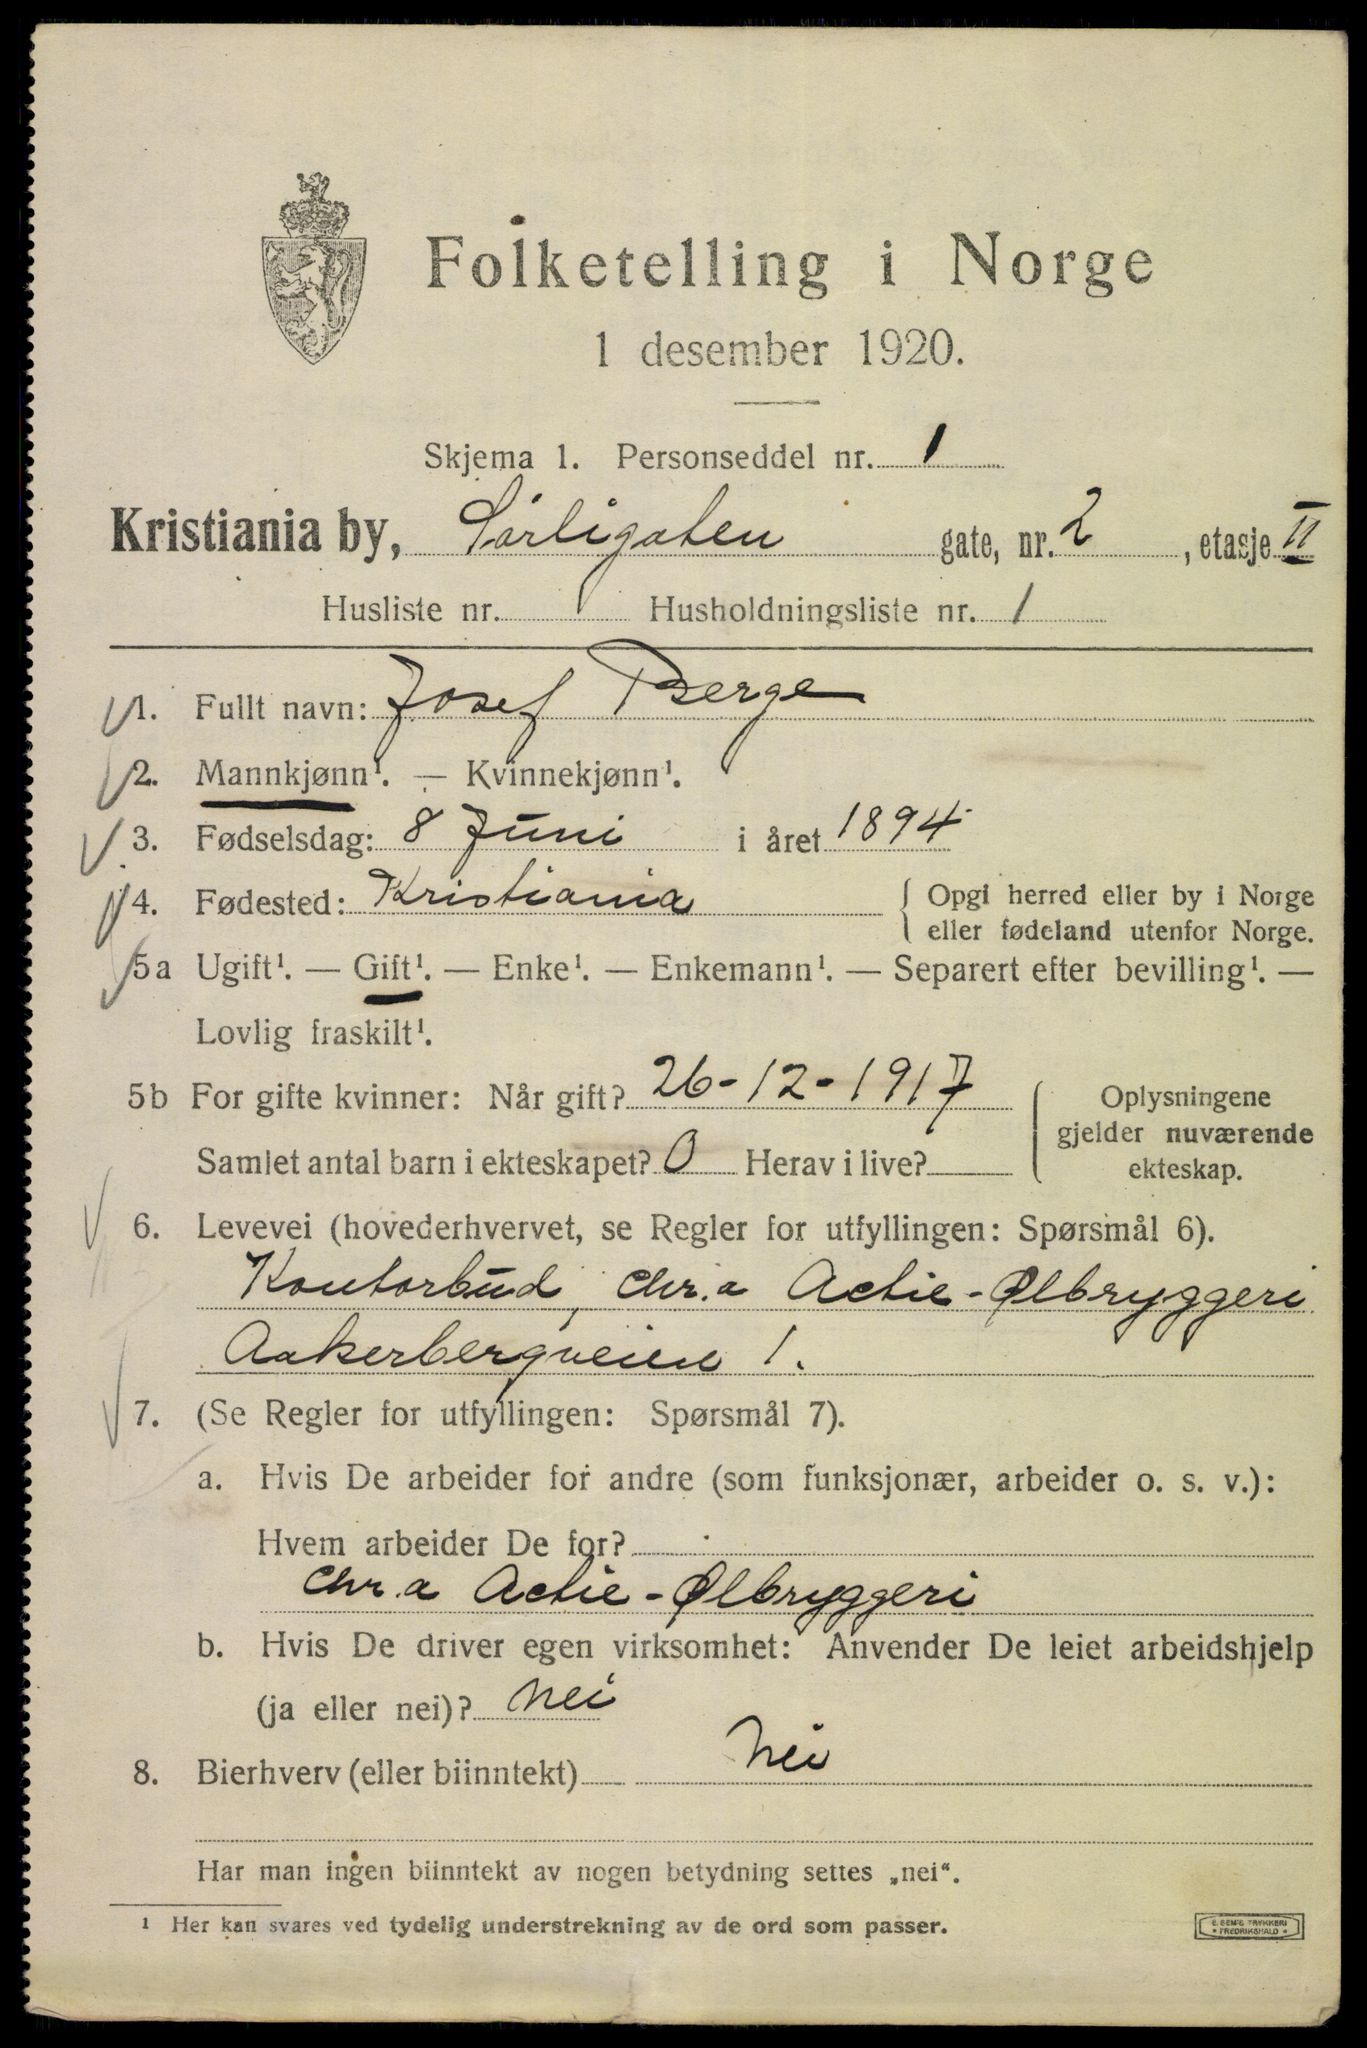 Folketelling i Norge
1 desember 1920.
Skjema 1. Personseddel nr. 1
Kristiania by, Sørligaten gate, nr. 2, etasje II
Husliste nr. 1 Husholdningsliste nr. 1
1. Fullt navn: Josef Berge
2. Mannkjønn¹. — Kvinnekjønn¹.
3. Fødselsdag: 8 Juni i året 1894
4. Fødested: Kristiania { Opgi herred eller by i Norge
eller fødeland utenfor Norge.
5a Ugift¹. — Gift¹. — Enke¹. — Enkemann¹. — Separert efter bevilling¹. —
Lovlig fraskilt¹.
5b For gifte kvinner: Når gift? 26-12-1917 { Oplysningene
gjelder nuværende
Samlet antal barn i ekteskapet? 0 Herav i live?
ekteskap.
6. Levevei (hovederhvervet, se Regler for utfyllingen: Spørsmål 6).
Kontorbud, Chr.a Actie-Ølbryggeri
Aakerbergveien 1.
7. (Se Regler for utfyllingen: Spørsmål 7).
a. Hvis De arbeider for andre (som funksjonær, arbeider o. s. v.):
Hvem arbeider De for?
Chr.a Actie-Ølbryggeri
b. Hvis De driver egen virksomhet: Anvender De leiet arbeidshjelp
(ja eller nei)? Nei
8. Bierhverv (eller biinntekt) Nei
Har man ingen biinntekt av nogen betydning settes „nei“.
¹ Her kan svares ved tydelig understrekning av de ord som passer.
E. SEM'S TRYKKERI
* FREDRIKSHALD *